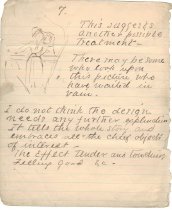 7.
This suggests
another possible
treatment—
There may be some
who look upon
this picture who
have waited in
vain.
I do not think the design
needs any further explanation
It tells the whole story and
embraces all the chief objects
of interest—
The Effect Tender and
Feeling Good &c.